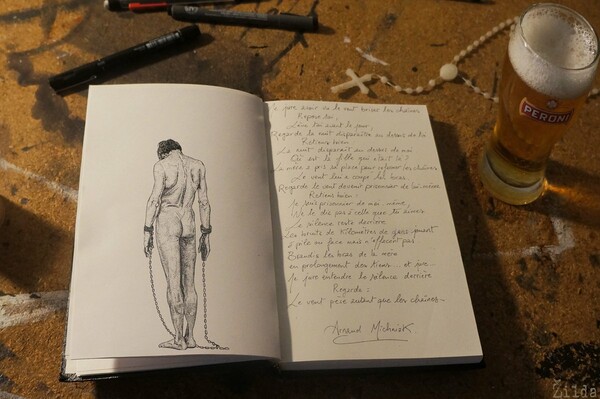 Je jure avoir vu le vent briser les chaînes
Repose toi :
Laisse
avant le jour
Regarde la nuit disparaître au dessus de toi
Retiens bien :
La nuit disparaît au dessus de moi
Où est la fille qui était là ?
La mère a pris sa place pour retenir les chaînes
Le vent lui a coupé les bras
Regarde le vent devenir prisonnier de lui-même
Retiens bien :
Je suis prisonnier de moi-même,
Ne le dis pas à celle que tu aimes.
Le silence reste derrière
Les bruits de kilomètres de gens
à pile ou face mais n'effacent pas
les bras de la mère
en prolongement des tiens... et jure
Je jure entendre le silence derrière
Regarde :
Le vent pèse autant que les chaînes
Arnaud Michniak
PERONI
Zilda